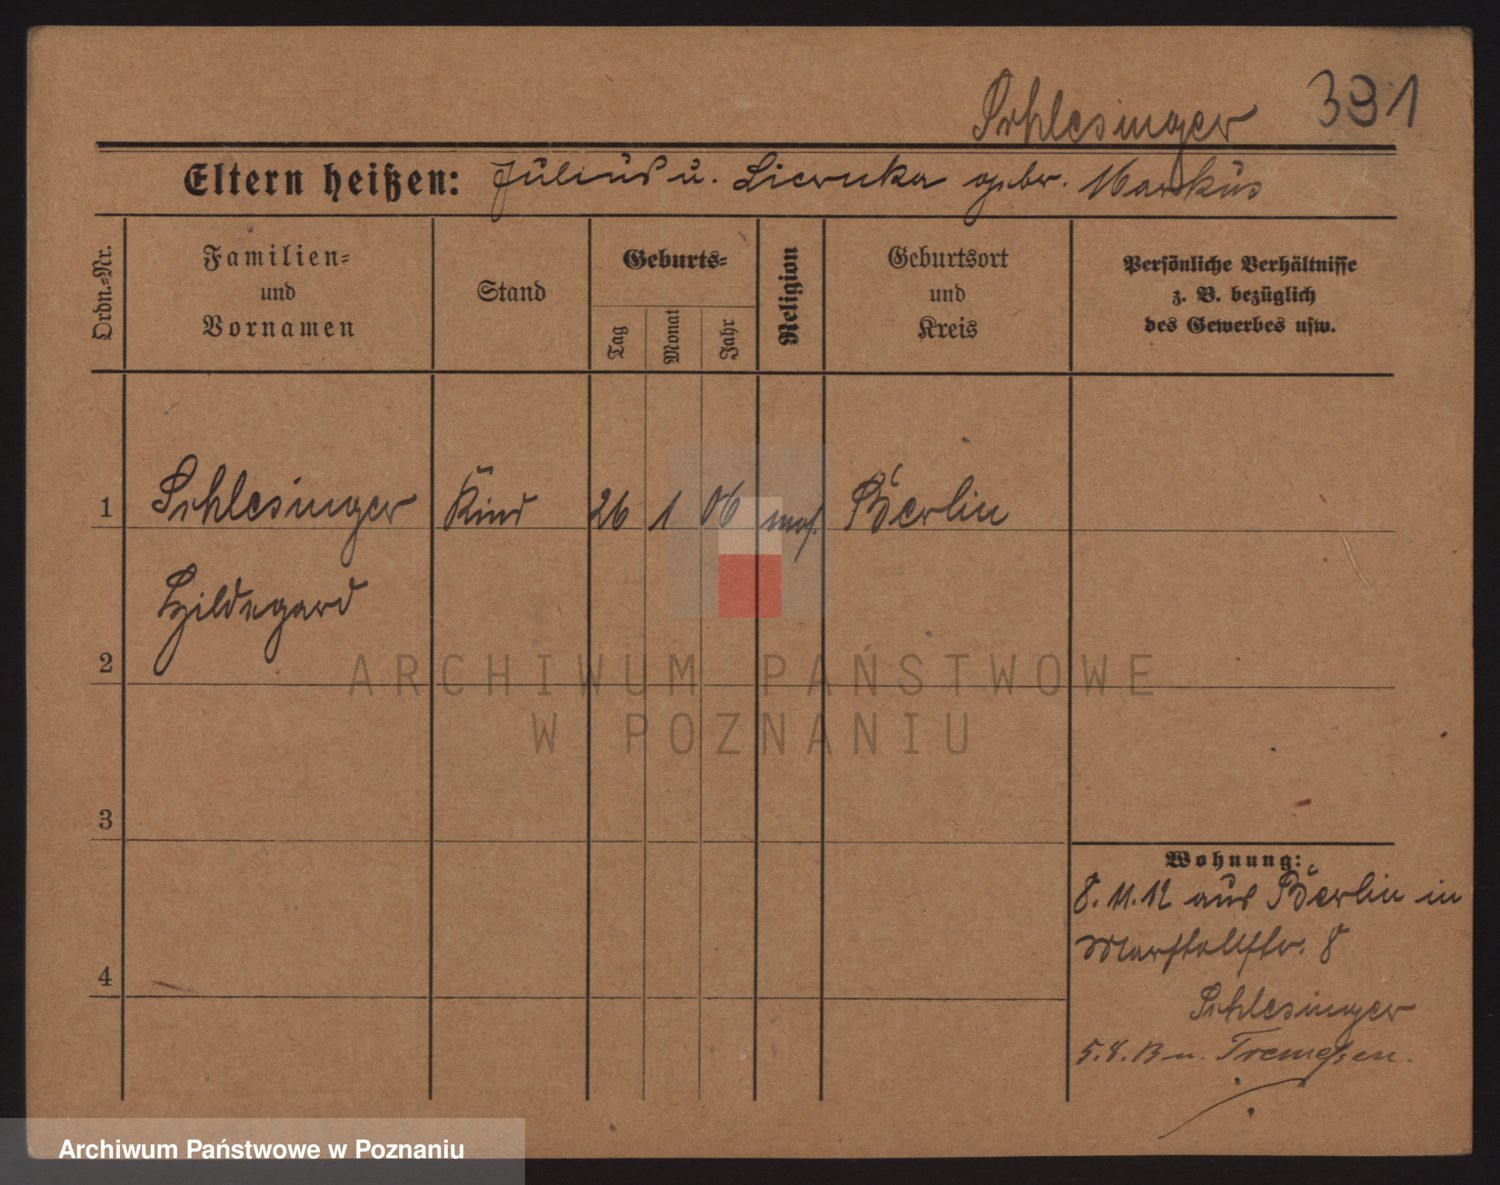 Schlesinger 391
Eltern heißen: Julius u. geb. Markus
Ordn.-Nr.
Familien-
und
Vornamen
Stand
Geburts-
Tag
Monat
Jahr
Religion
Geburtsort
und
Kreis
Persönliche Verhältnisse
z. B. bezüglich
des Gewerbes usw.
1 Schlesinger Kind 26 1 06 mos. Berlin
Hildegard
2
ARCHIWUM PAŃSTWOWE
W POZNANIU
3
Wohnung:
8.11.12 aus Berlin in
Marstallstr. 8
4
Schlesinger
5.8.13 n. Tremessen.
Archiwum Państwowe w Poznaniu